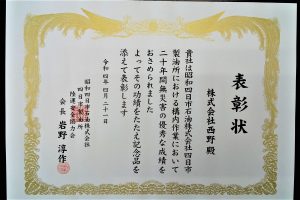 表彰状
株式会社西野殿
貴社は昭和四日市石油株式会社四日市
製油所における構内作業において
二十年間無災害の優秀な成績を
おさめられました
よってその功績をたたえ記念品を
添えて表彰します
令和四年四月二十一日
昭和四日市石油株式会社
四日市製油所
陸運安全協力会
会長 岩野淳作